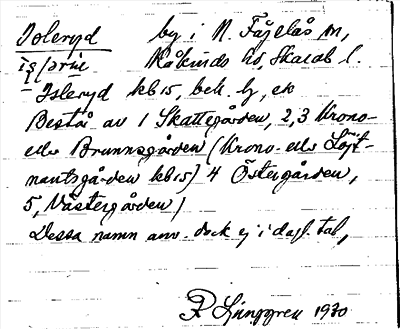 Isleryd by i N. Fågelås sn,
Kåkinds hd, Skarab l.
Isleryd kb 15, bek. by, ek
Består av 1 Skattegården, 2,3 Krono-
eller Brunnsgården (Krono- eller Löjt-
nantsgården kb 15) 4 Östergården,
5, Västergården)
Dessa namn anv. dock ej i dagl. tal,
R Ljunggren 1930